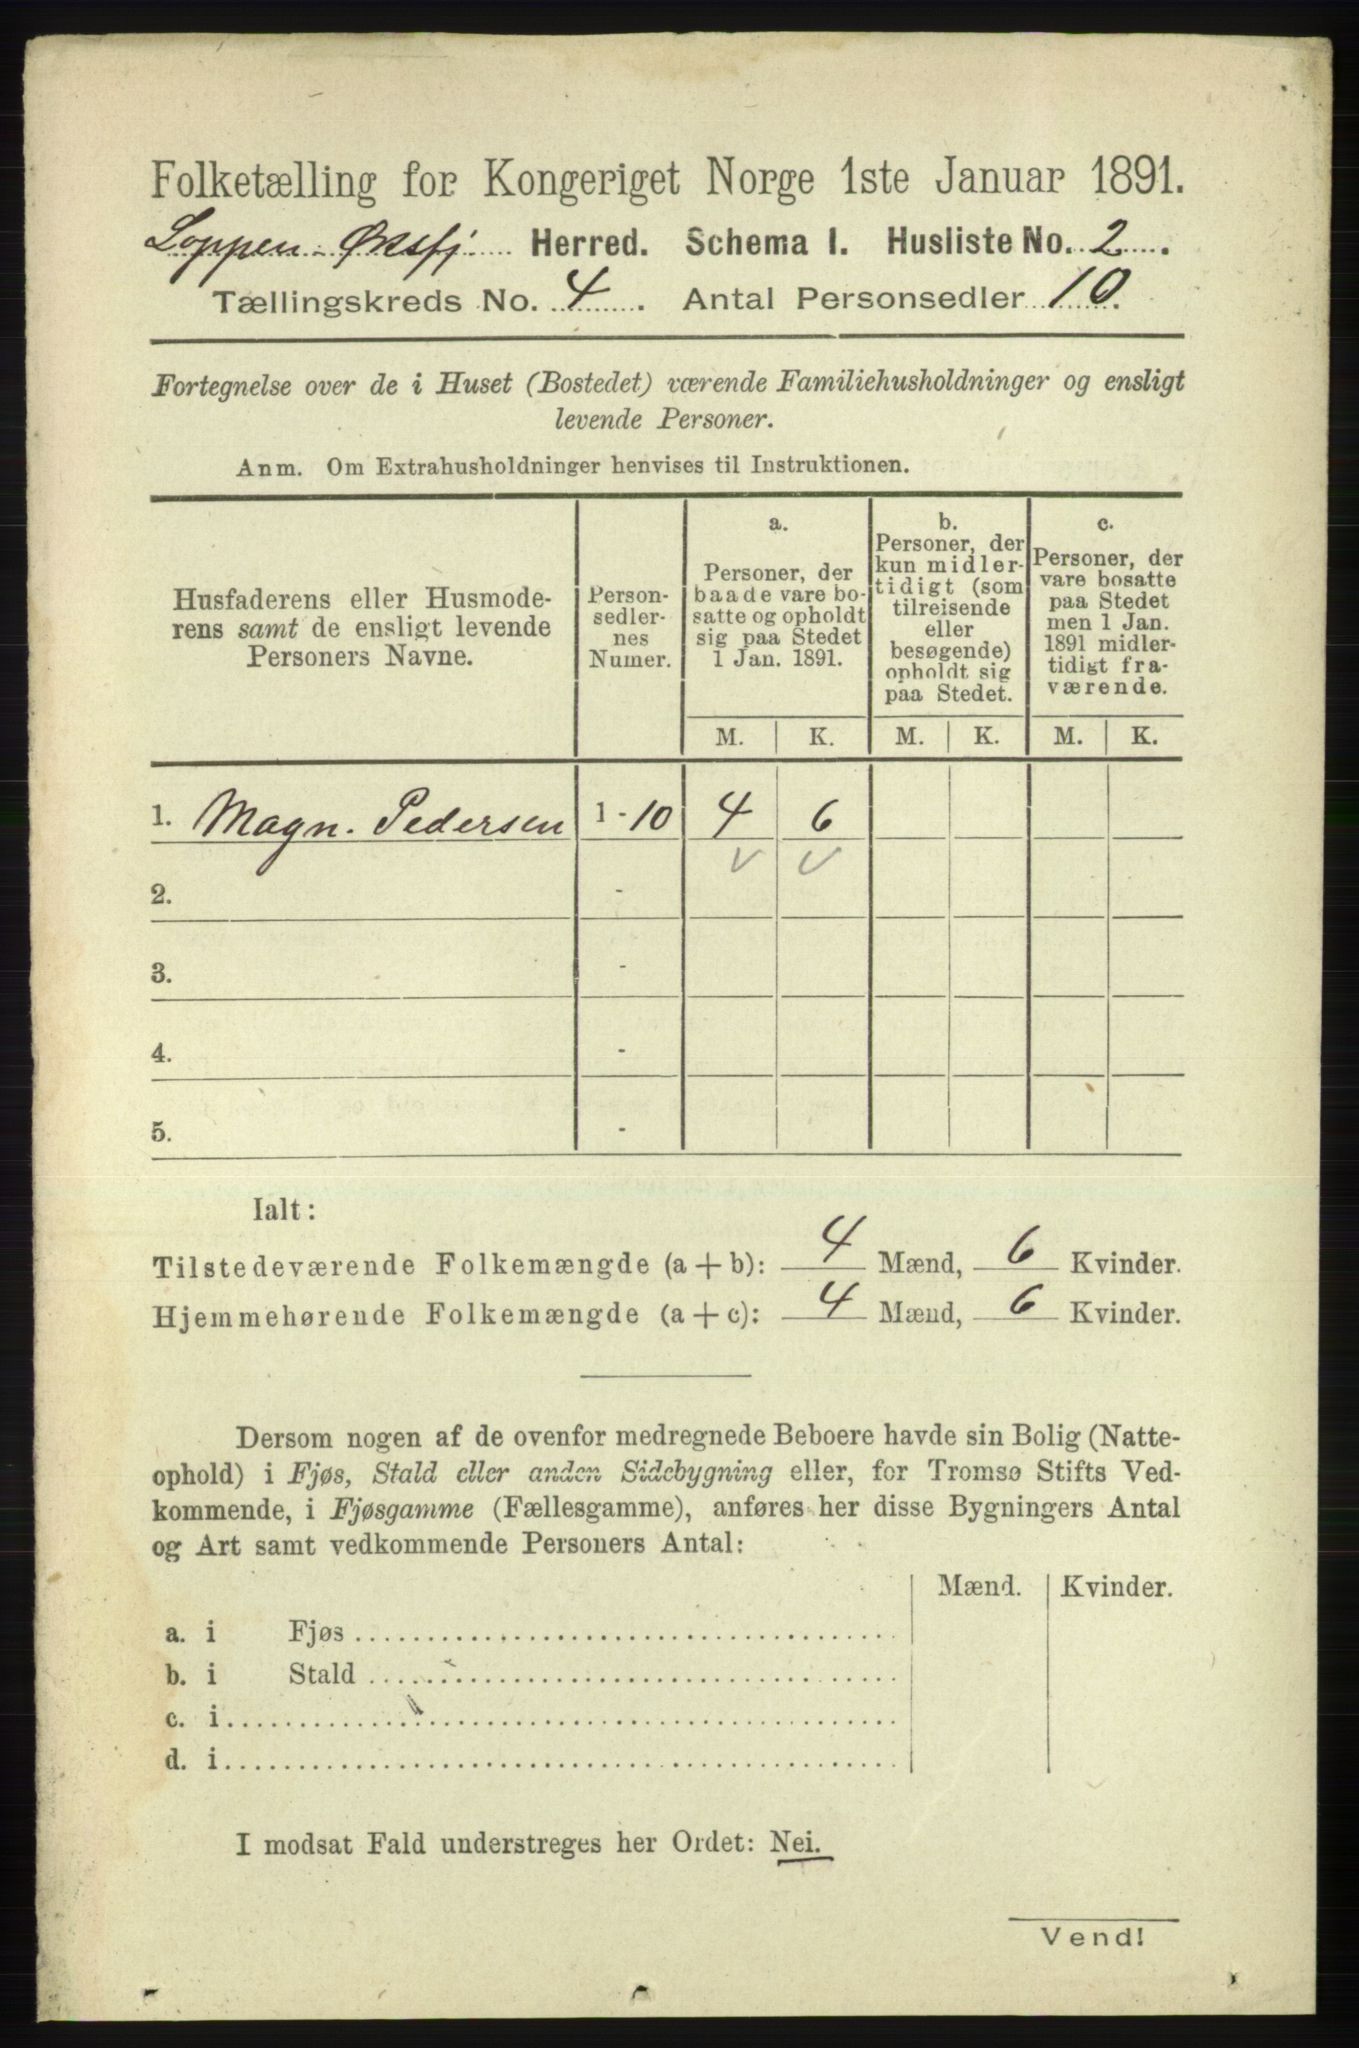 Folketælling for Kongeriget Norge 1ste Januar 1891.
Loppen - Øksfj. Herred. Schema I. Husliste No. 2.
Tællingskreds No. 4. Antal Personsedler 10.
Fortegnelse over de i Huset (Bostedet) værende Familiehusholdninger og ensligt
levende Personer.
Anm. Om Extrahusholdninger henvises til Instruktionen.
Husfaderens eller Husmode-
rens samt de ensligt levende
Personers Navne.
Person-
sedler-
nes
Numer.
a.
Personer, der
baade vare bo-
satte og opholdt
sig paa Stedet
1 Jan. 1891.
b.
Personer, der
kun midler-
tidigt (som
tilreisende
eller
besøgende)
opholdt sig
paa Stedet.
c.
Personer, der
vare bosatte
paa Stedet
men 1 Jan.
1891 midler-
tidigt fra-
værende.
M. K. M. K. M. K.
1. Magn. Pedersen 1 - 10 4 6
2. -
3. -
4. -
5. -
Ialt:
Tilstedeværende Folkemængde (a + b): 4 Mænd, 6 Kvinder.
Hjemmehørende Folkemængde (a + c): 4 Mænd, 6 Kvinder.
Dersom nogen af de ovenfor medregnede Beboere havde sin Bolig (Natte-
ophold) i Fjøs, Stald eller anden Sidebygning eller, for Tromsø Stifts Ved-
kommende, i Fjøsgamme (Fællesgamme), anføres her disse Bygningers Antal
og Art samt vedkommende Personers Antal:
Mænd. Kvinder.
a. i Fjøs
b. i Stald
c. i
d. i
I modsat Fald understreges her Ordet: Nei.
Vend!